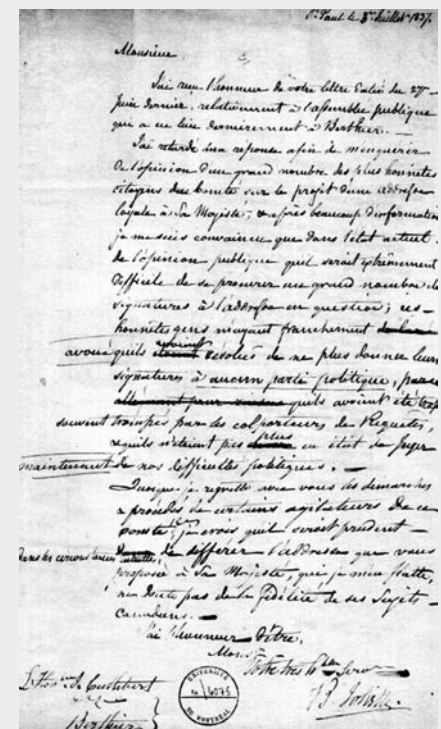 St Paul le 3me Juillet 1837.
Monsieur
J'ai reçu l'honneur de votre lettre datée du 27
Juin dernier, relativement à l'assemblée publique
qui a eu lieu dernièrement à Berthier. —
J'ai retardé ma réponse afin de m'enquérir
de l'opinion d'un grand nombre des plus honnêtes
citoyens du comté sur le projet d'une addresse
loyale à Sa Majesté, & après beaucoup d'information
je me suis convaincu que dans l'état actuel
de l'opinion publique qu'il serait extrêmement
difficile de se procurer un grand nombre de
signatures à l'addresse en question; ces
honnêtes gens m'ayant franchement
avoué qu'ils avoient résolus de ne plus donner leur
signatures à aucun parti politique,
qu'ils avoient été trop
souvent trompés par des colporteurs de Requêtes,
& qu'ils n'étaient pas plus en état de juger
maintenant de nos difficultés politiques. —
Quoique je regrette avec vous les démarches
& procédés de certains agitateurs de ce
comté, je crois qu'il serait prudent —
dans les circonstances actuelles, de différer l'addresse que vous
proposé à Sa Majesté, qui je m'en flatte,
ne doute pas de la fidélité de ses Sujets
Canadiens. —
J'ai l'honneur d'être.
Monsr
Votre très hble Serv
L'Honble J. Cuthbert
Berthier
B. Joliette
UNIVERSITÉ
DE MONTRÉAL